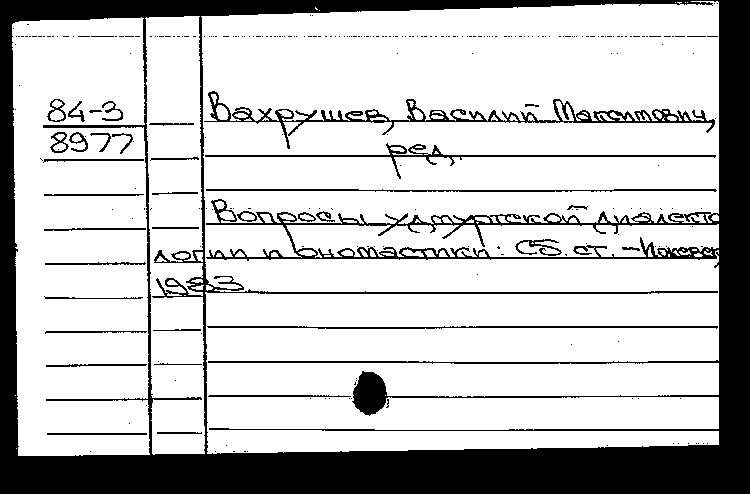 84-3 Вахрушев, Василий Максимович,
8977 ред.
Вопросы удмуртской диалекто
логии и ономастики: Сб. ст. - Ижевск,
1983.